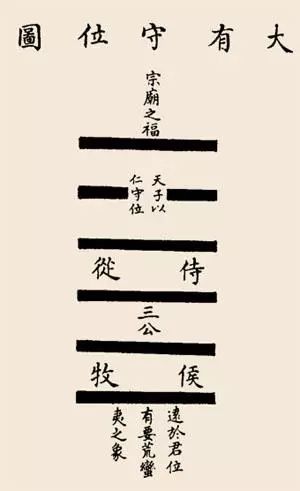 大有守位圖
宗廟之福
天子以
仁守位
侍從
三公
侯牧
遠於君位
有要荒蠻
夷之象